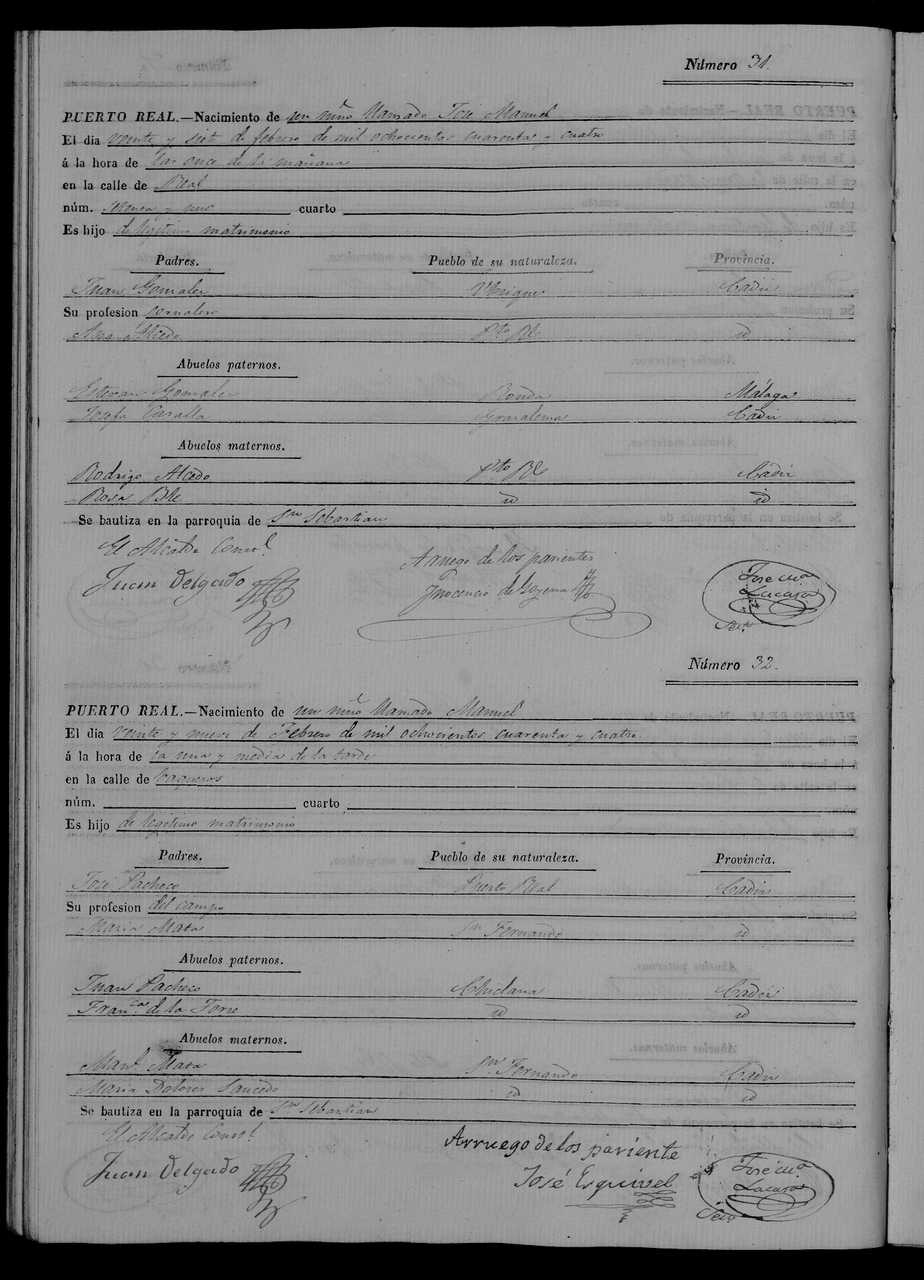 Número 31.
PUERTO REAL.—Nacimiento de un niño llamado José Manuel
El dia veinte y siete de febrero de mil ochocientos cuarenta y cuatro
á la hora de las once de la mañana
en la calle de Real
núm. cuarto
Es hijo de legitimo matrimonio
Padres. Pueblo de su naturaleza. Provincia.
Juan Gonzalez Ubrique Cadiz
Su profesion jornalero
Ana Alcedo Pto Rl id
Abuelos paternos.
Estevan Gonzalez Ronda Málaga
Josefa Grazalema Cadiz
Abuelos maternos.
Rodrigo Alcedo Pto Rl Cadiz
Rosa id id
Se bautiza en la parroquia de Sn Sebastian
El Alcalde Consl.
Juan Delgado
A ruego de los parientes
Ynocencio de
José
Número 32.
PUERTO REAL.—Nacimiento de un niño llamado Manuel
El dia veinte y nueve de Febrero de mil ochocientos cuarenta y cuatro
á la hora de la una y media de la tarde
en la calle de baqueros
núm. cuarto
Es hijo de legitimo matrimonio
Padres. Pueblo de su naturaleza. Provincia.
José Pacheco Puerto Real Cadiz
Su profesion del campo
Maria Mata Sn Fernando id
Abuelos paternos.
Juan Pacheco Chiclana Cadiz
Franca. de la Torre id id
Abuelos maternos.
Manl. Mata Sn Fernando Cadiz
Maria Dolores Saucedo id id
Se bautiza en la parroquia de Sn Sebastian
El Alcalde Consl.
Juan Delgado
Arruego de los pariente
José Esquivel
José